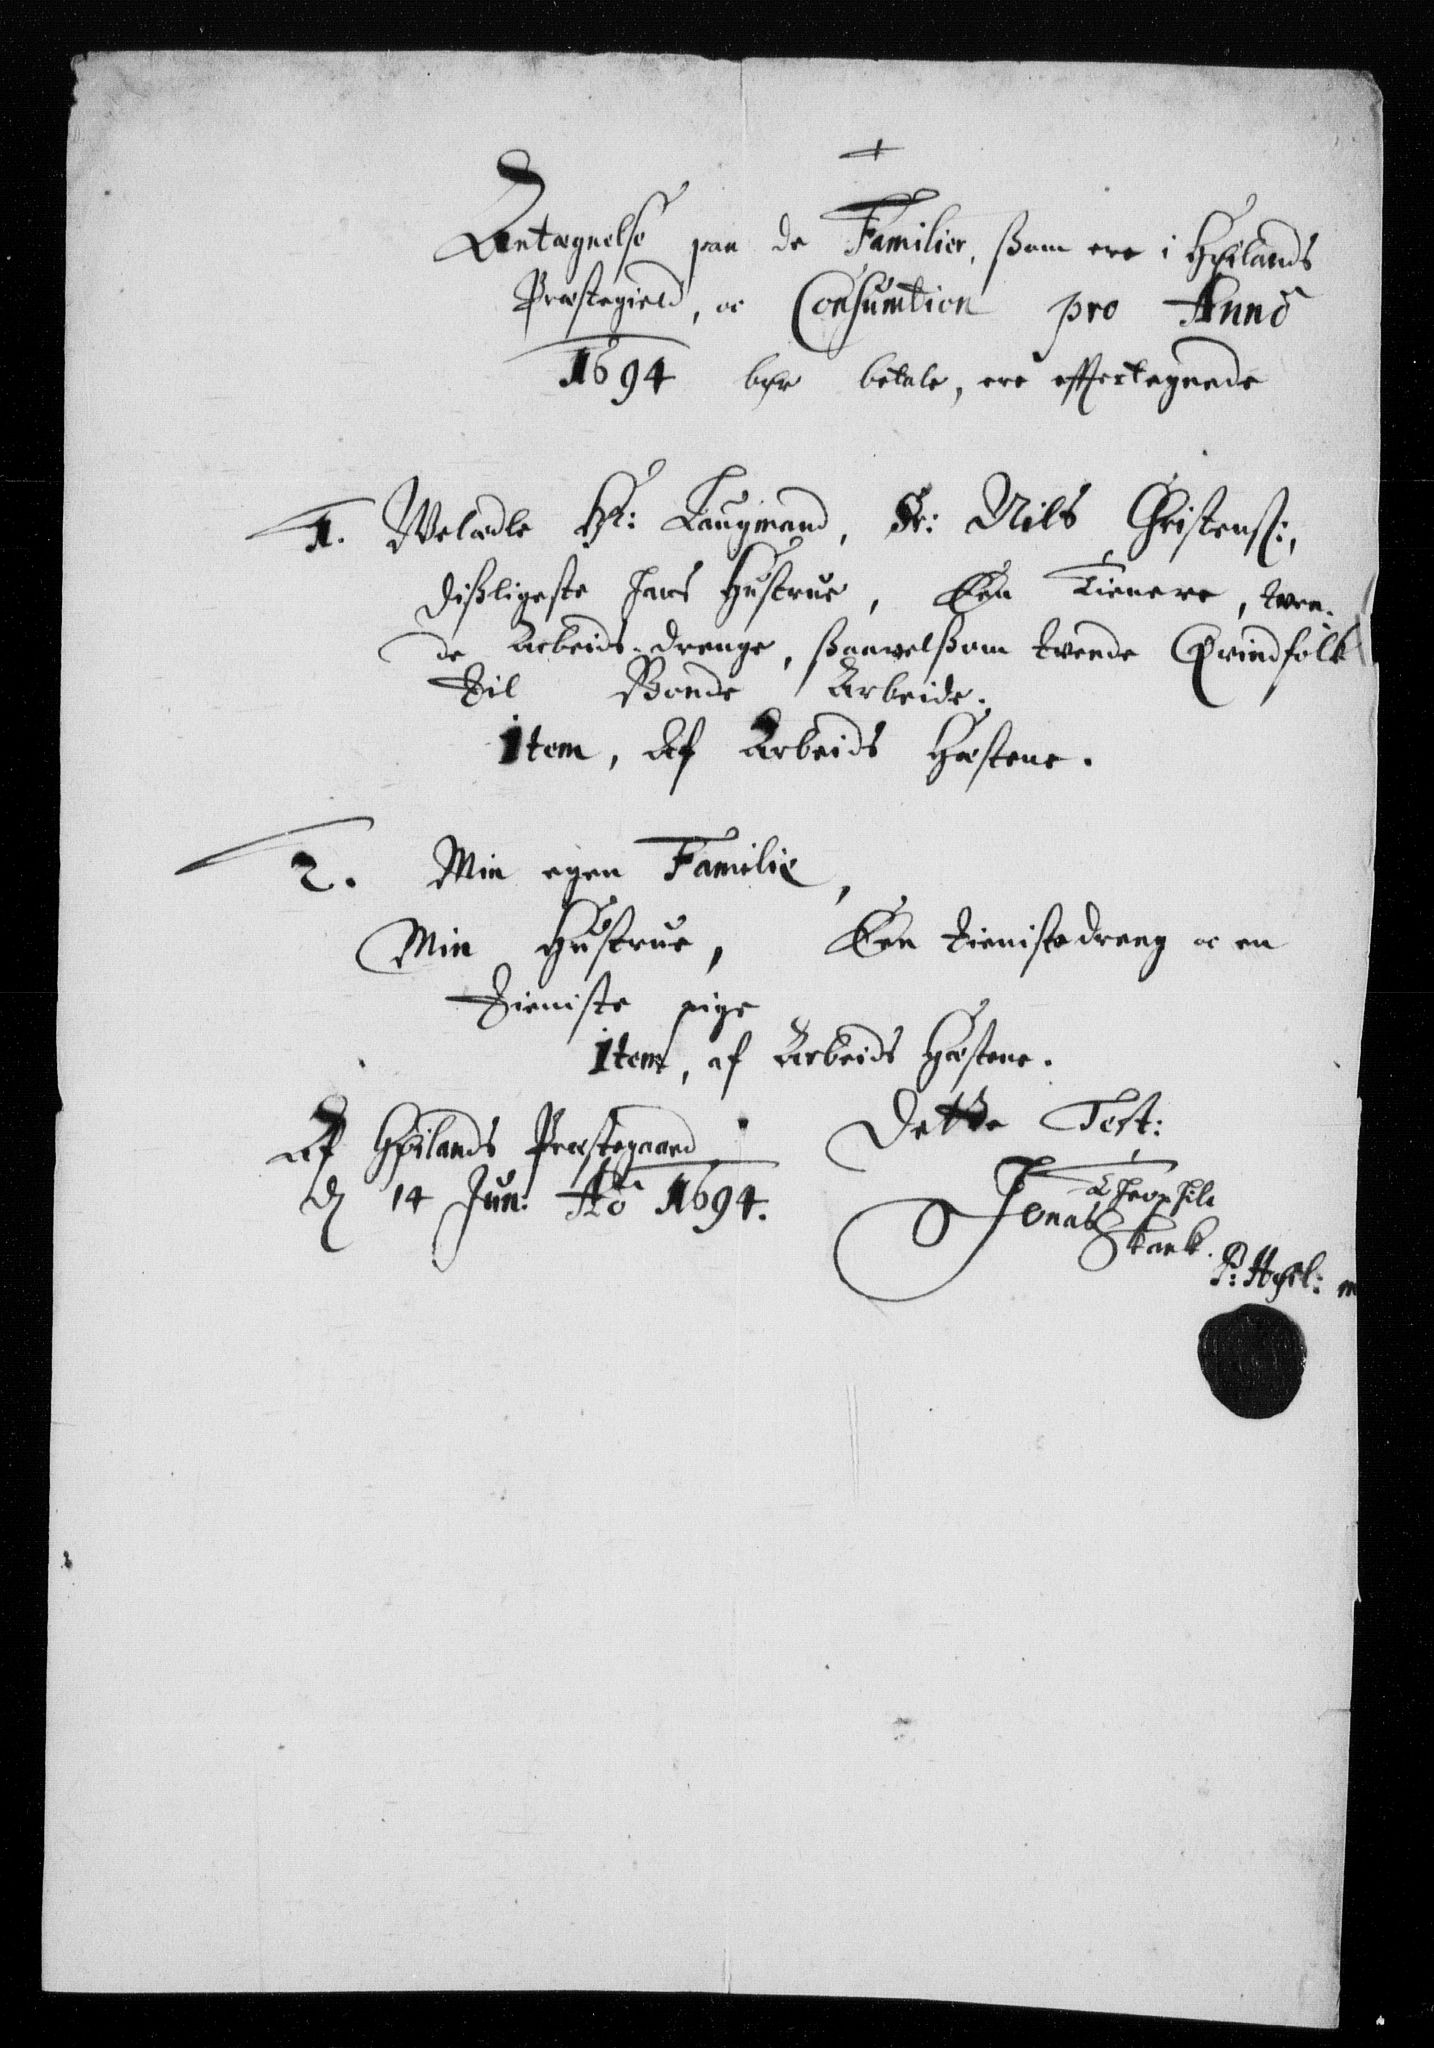 Antægnelse paa de Familier, ßom ere i Høilands
Præstegield, oc Consumtion pro Anno
1694 bør betale, ere efftertegnede
1. Welædle Hr: Laugmand, Sr: Nils Christenß:,
dißligeste hans Hustrue, Een Tienere, tven-
de Arbeids-drenge, ßaavelßom tvende Qvindfolk
til Bonde Arbeide.
Item, Af Arbeids Hæstene.
2. Min egen Familie,
Min Hustrue, Een tienistedreng oc en
tieniste pige
Item, af Arbeids Hæstene.
Af Høilands Præstegaard
d 14 Jun: Ao 1694.
Dette Test:
Jonas Theophili
Skank.
P: Høil: m